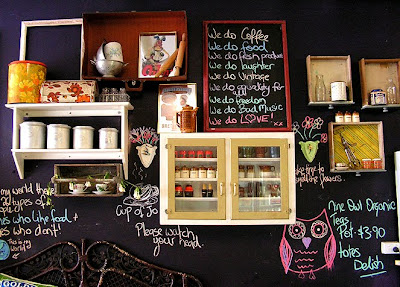 We do Coffee
We do food
We do fresh produce
We do laughter
We do Vintage
We do equality for all
We do freedom
We do Soul Music
We do LOVE!
xx
my world there
types of
people
who like food +
who don't!
This is my
World
Cup of Jo
Please watch
your head.
time to
smell the flowers
Nine Owl Organic
Teas
Pot $3.90
totes
Delish